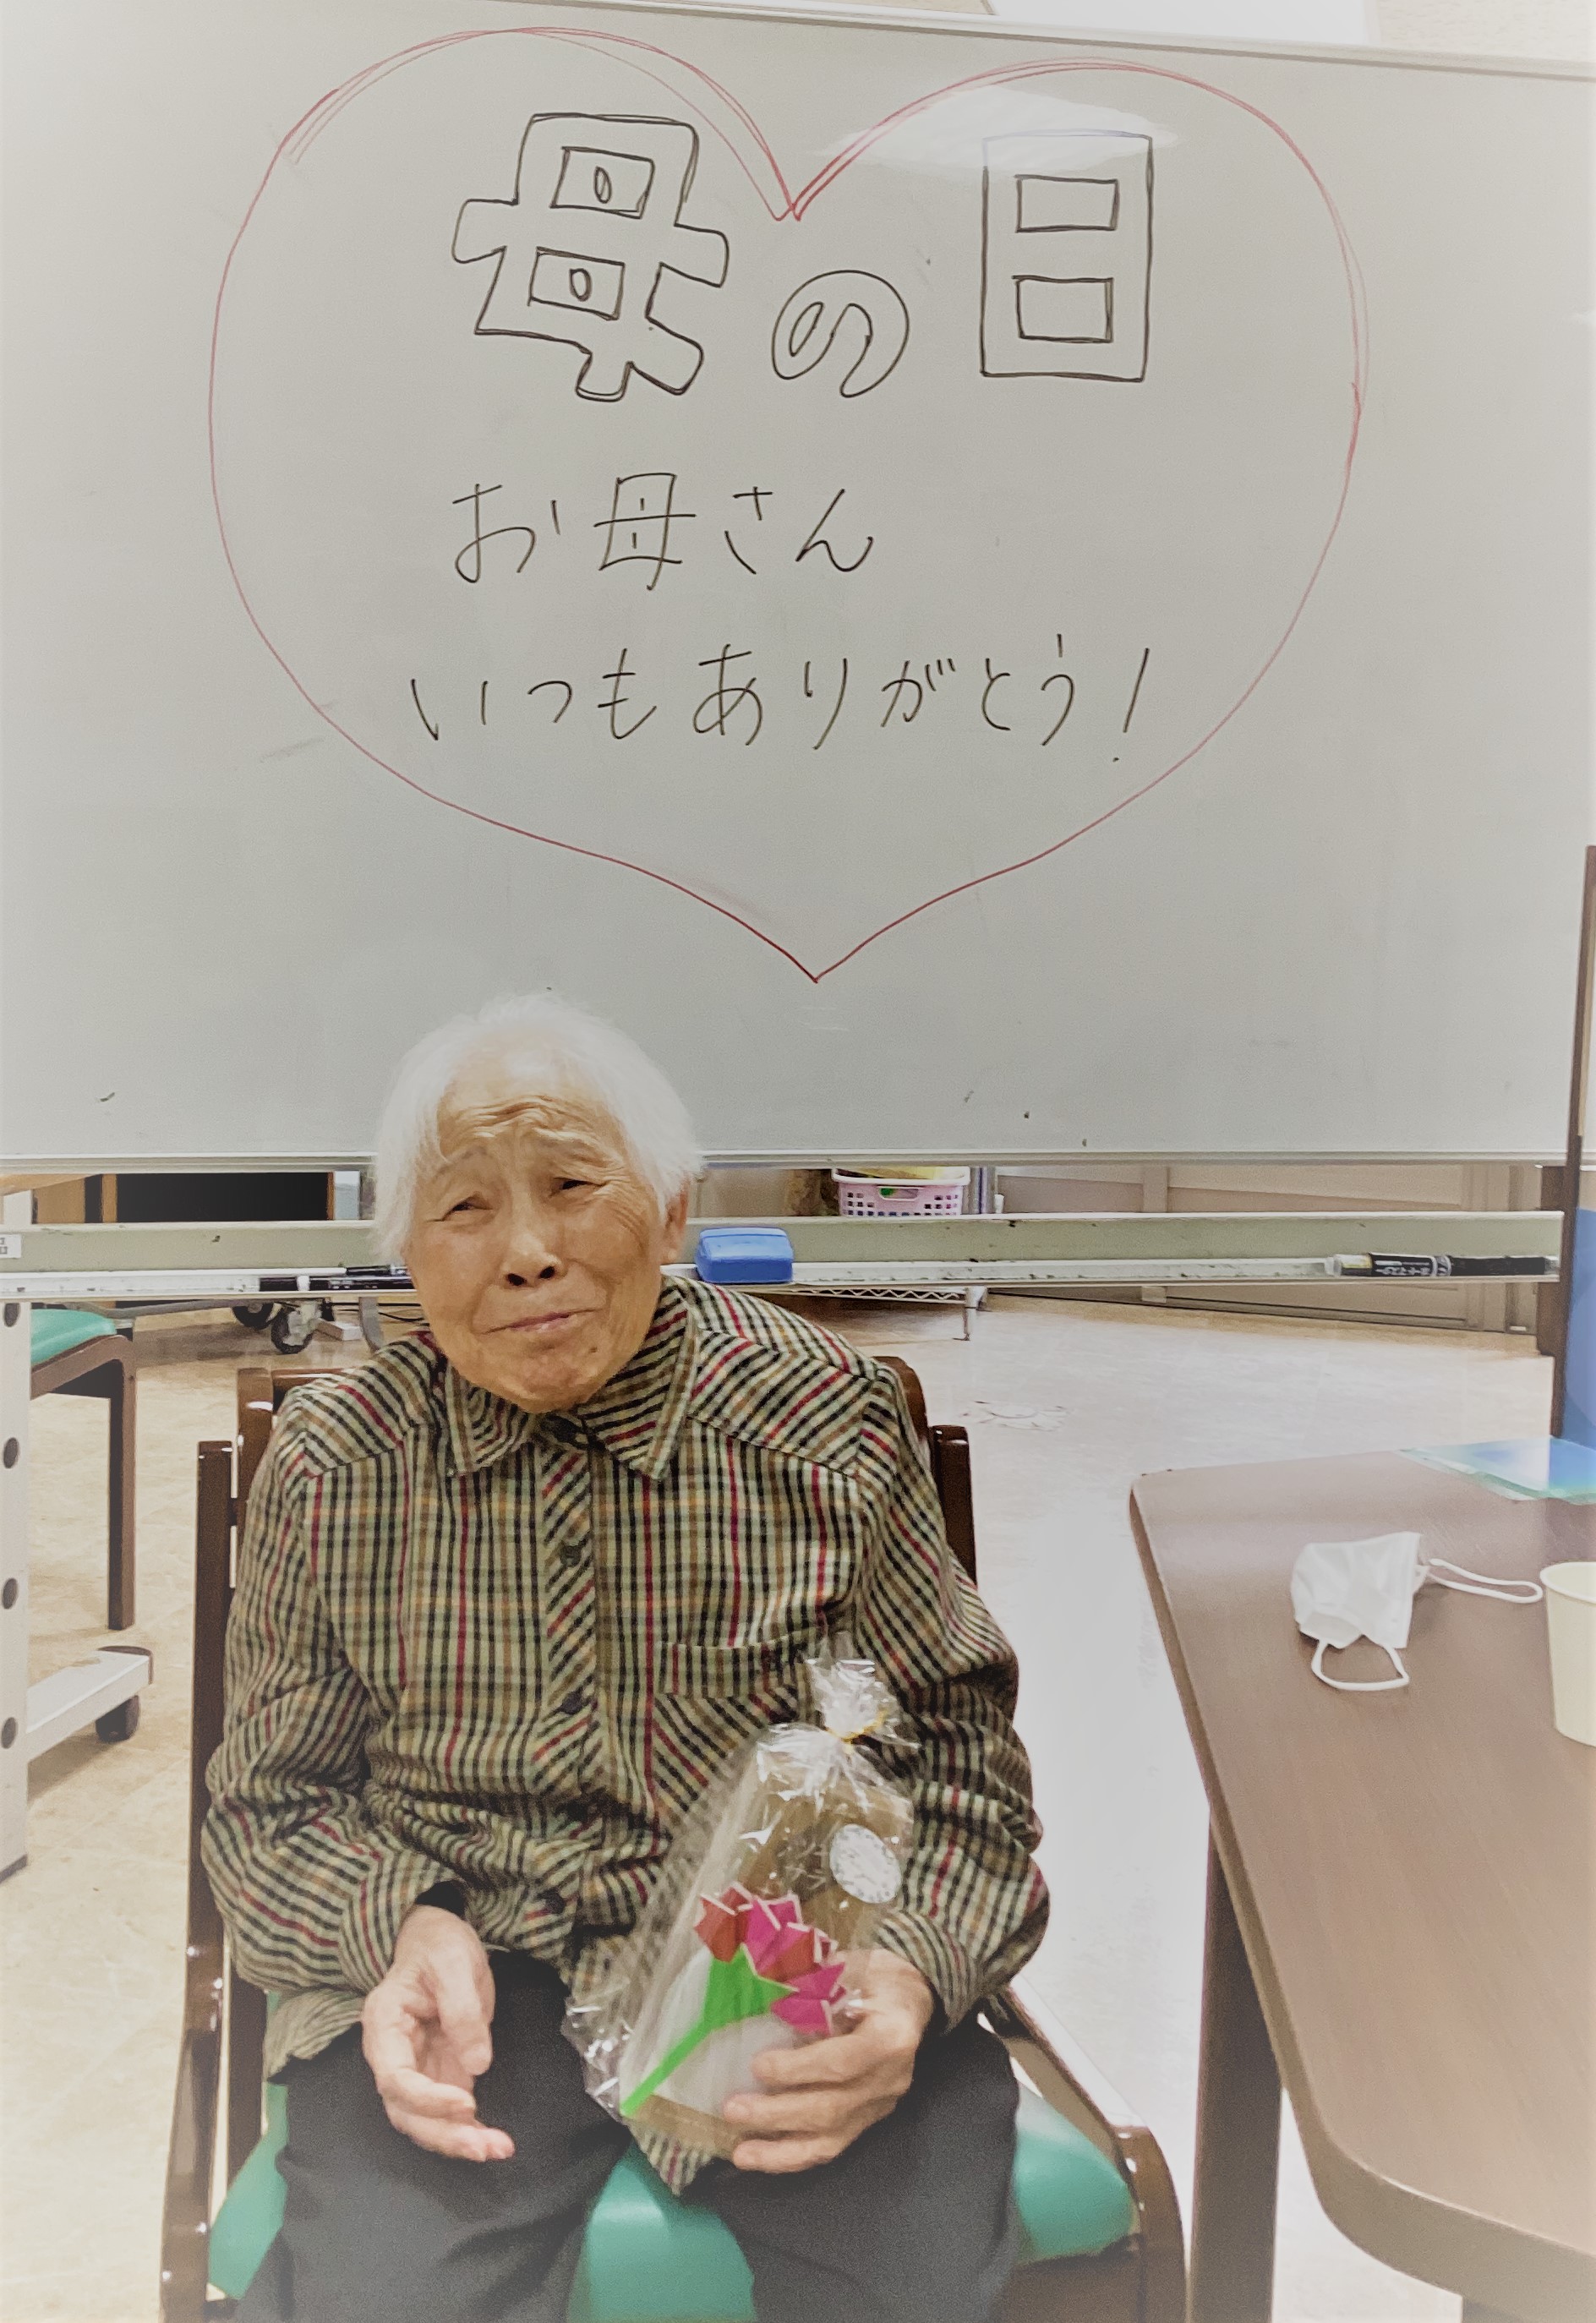 母の日
お母さん
いつもありがとう!